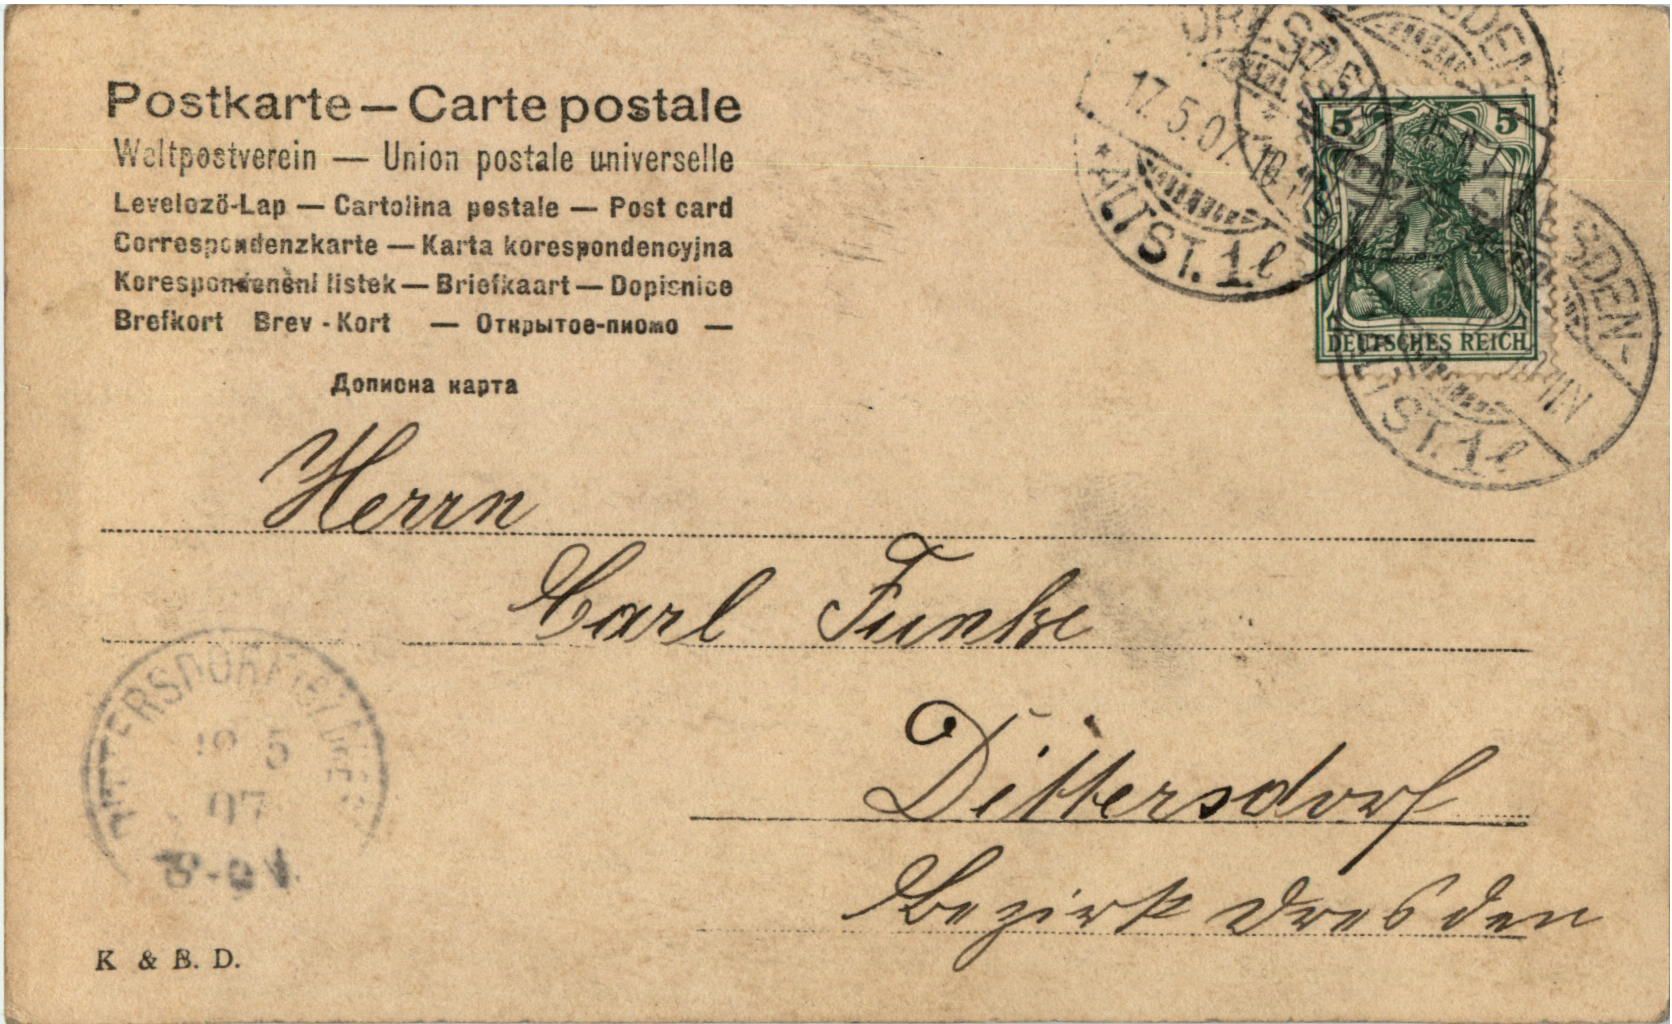 Postkarte — Carte postale
Weltpostverein — Union postale universelle
Levelező-Lap — Cartolina postale — Post card
Correspondenzkarte — Karta korespondencyjna
Korespondenční listek — Briefkaart — Dopisnice
Brefkort Brev-Kort — Открытое-письмо —
Дописна карта
DRESDEN
17.5.07. 10
* ALTST. 1 l
5 5
DEUTSCHES REICH
ALTST. 1 l
Herrn
Carl Funke
Dittersdorf
Bezirk Dresden
5
07
K & B. D.